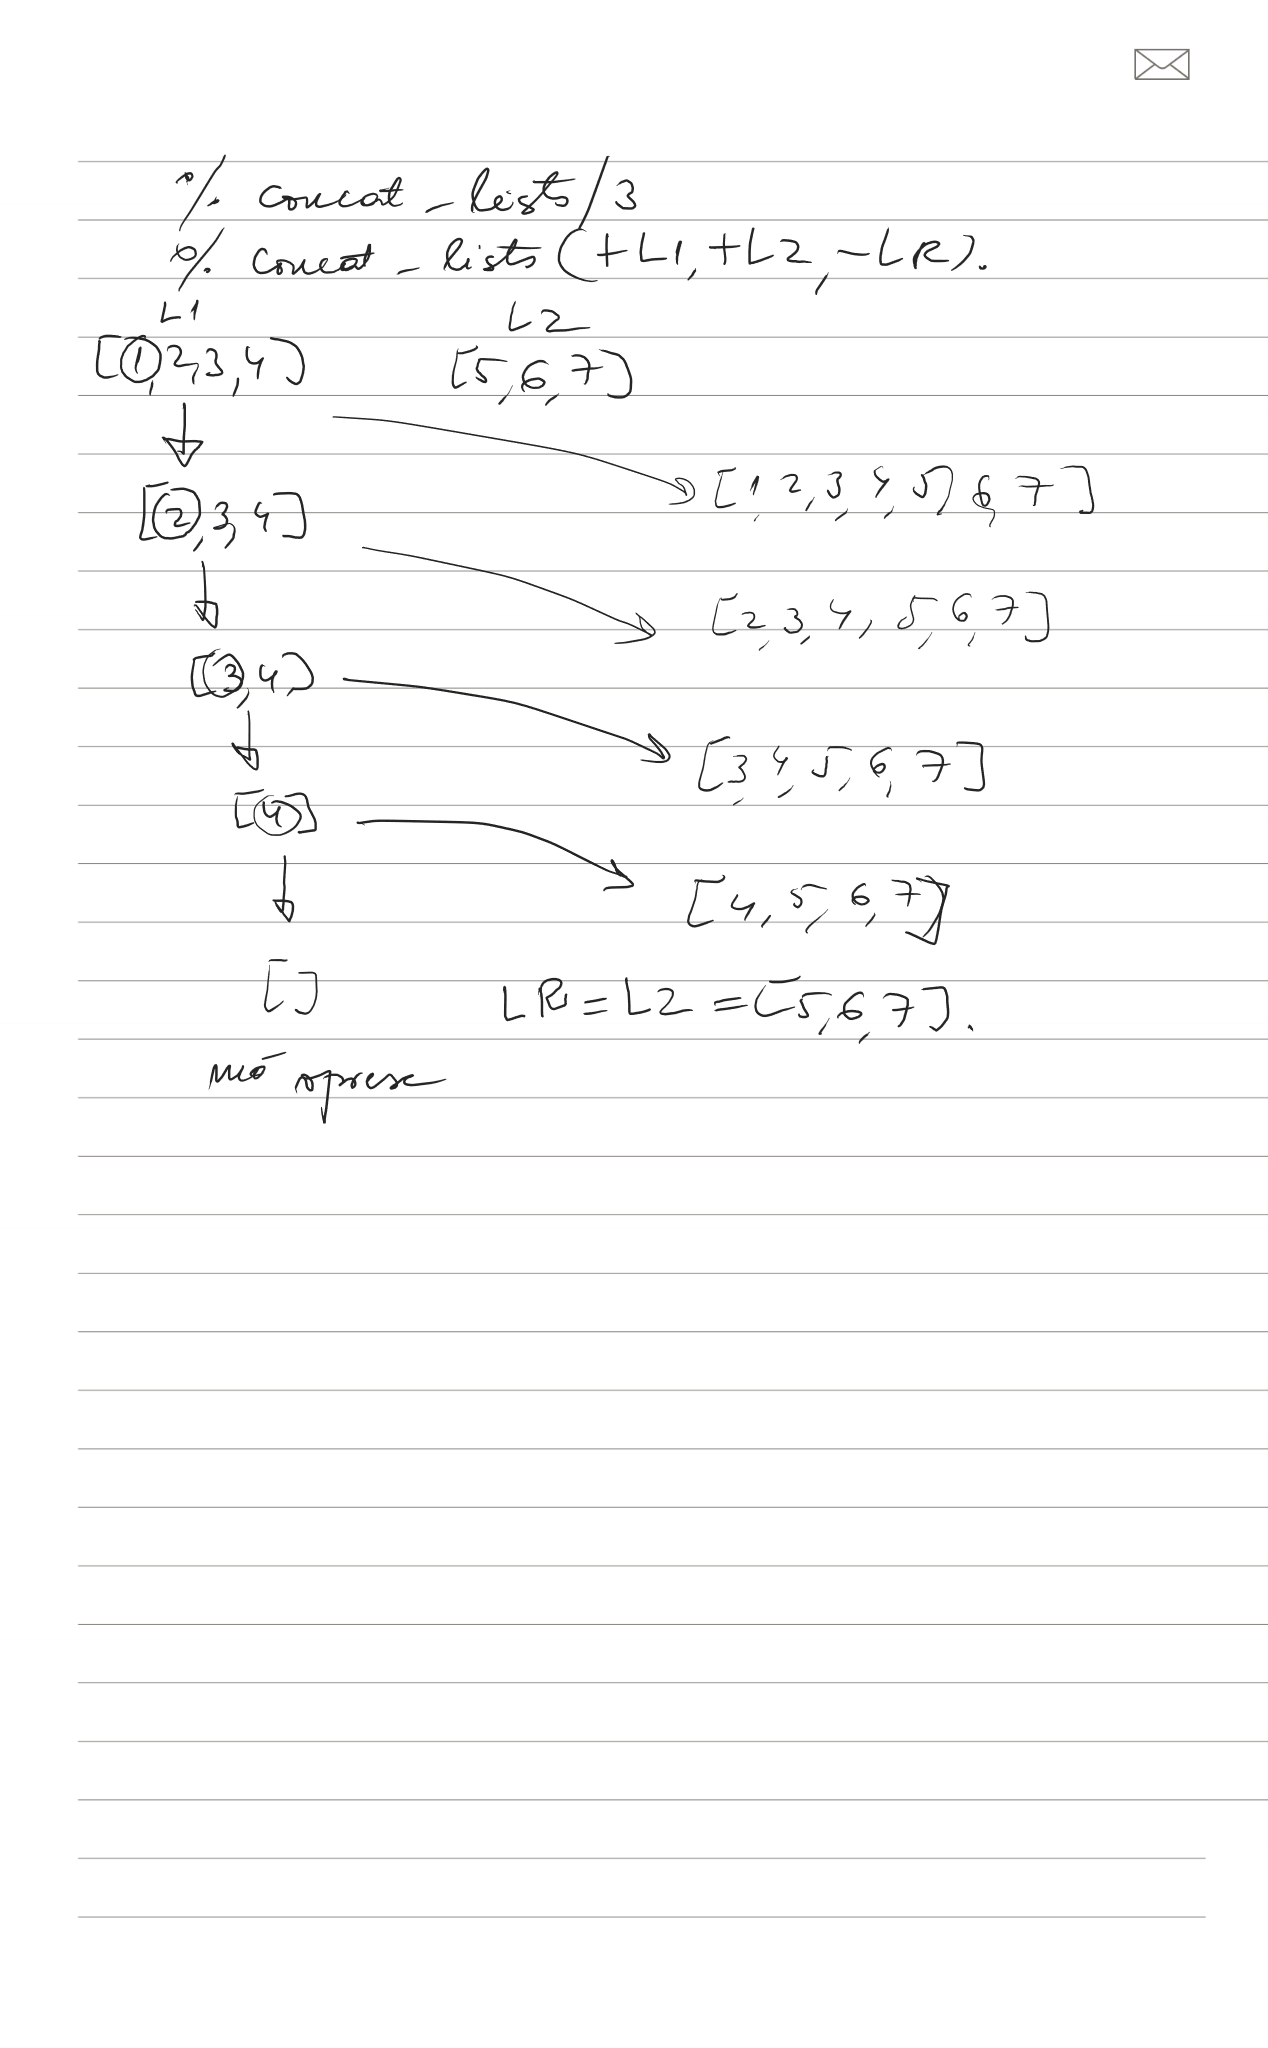 % concat_lists/3
% concat_lists(+L1,+L2,-LR).
L1 L2
[1,2,3,4] [5,6,7]
[1,2,3,4,5,6,7]
[2,3,4]
[2,3,4,5,6,7]
[3,4]
[3,4,5,6,7]
[4]
[4,5,6,7]
[] LR=L2=[5,6,7].
mă opresc